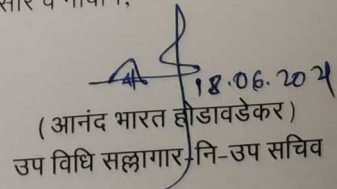 18.06.2021
( आनंद भारत होडावडेकर )
उप विधि सल्लागार-नि-उप सचिव